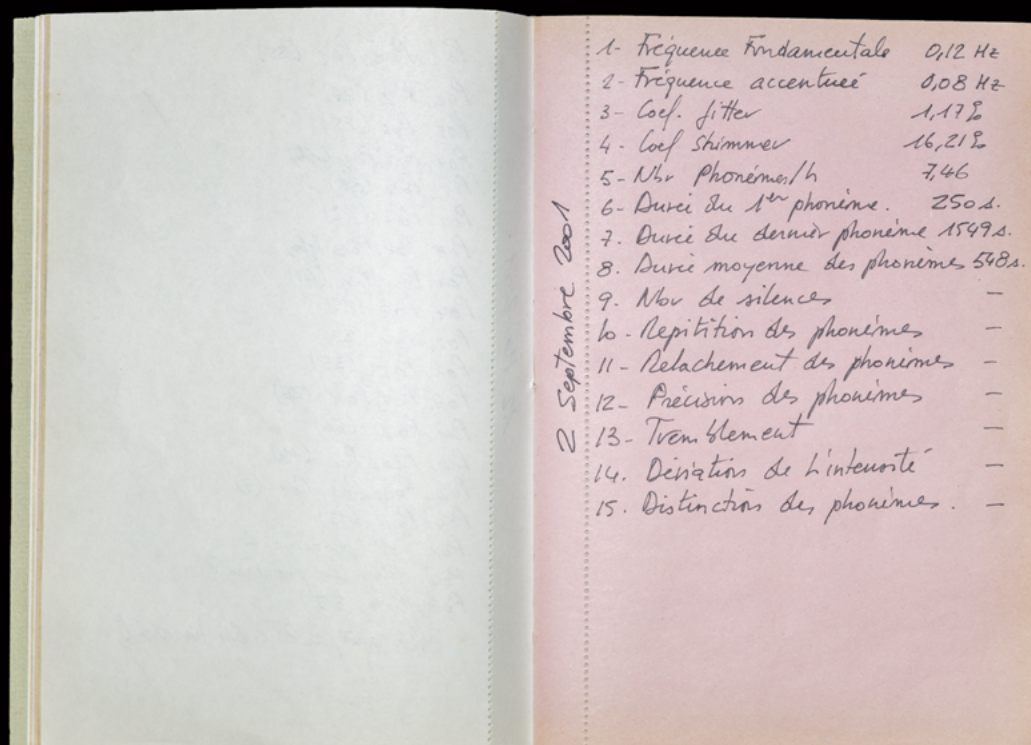 2 Septembre 2001
1- Fréquence Fondamentale 0,12 Hz
2- Fréquence accentuée 0,08 Hz
3- Coef. Jitter 1,17%
4- Coef Shimmer 16,21%
5- Nbr Phonémes/h 7,46
6- Durée du 1er phonème. 250 s.
7. Durée du dernier phonème 1549 s.
8. Durée moyenne des phonèmes 548 s.
9. Nbr de silences —
10- Repitition des phonémes —
11- Relachement des phonèmes —
12- Précision des phonèmes —
13- Tremblement —
14. Déviation de l'intensité —
15. Distinction des phonèmes. —